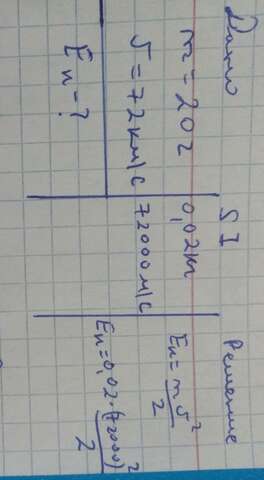 Дано
m = 20 г
υ = 72 км/с
Eк - ?
SI
0,02 кг
72000 м/с
Решение
Eк = mυ²/2
Eк = 0,02·(72000)²/2